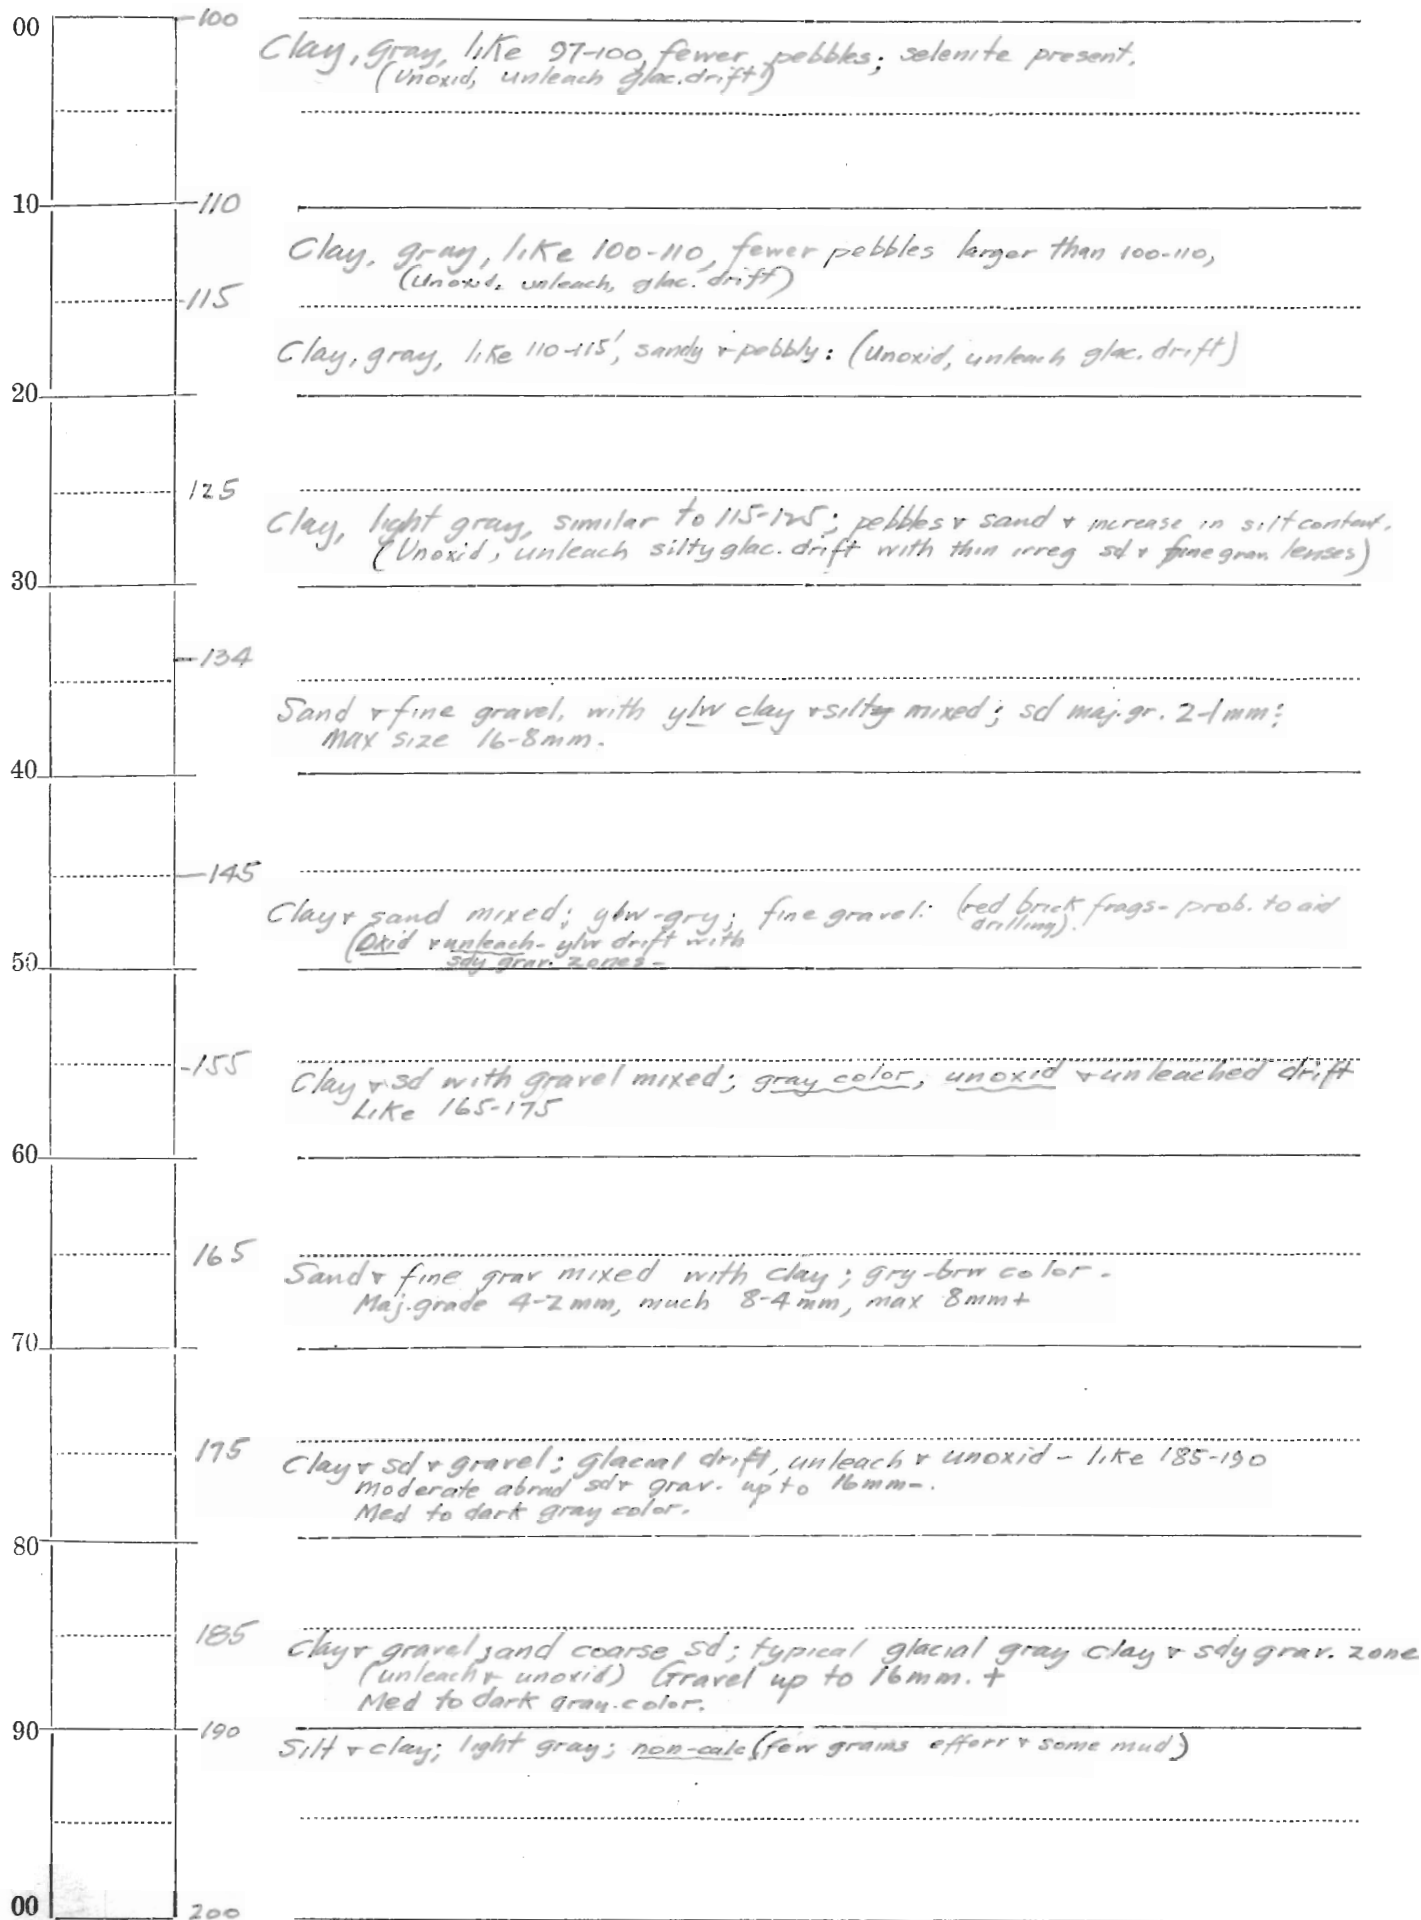 00 100
Clay, gray, like 97-100, fewer pebbles; selenite present.
(Unoxid, unleach glac. drift)
10 110
Clay, gray, like 100-110, fewer pebbles larger than 100-110,
(Unoxid, unleach, glac. drift)
115
Clay, gray, like 110-115', sandy & pebbly: (Unoxid, unleach glac. drift)
20
125
Clay, light gray, similar to 115-125; pebbles & sand & increase in silt content.
(Unoxid, unleach silty glac. drift with thin irreg sd & fine grav. lenses)
30
134
Sand & fine gravel, with ylw clay & silty mixed; sd maj. gr. 2-1mm;
max size 16-8mm.
40
145
Clay & sand mixed; ylw-gry; fine gravel: (red brick frags- prob. to aid
drilling).
(Oxid & unleach- ylw drift with
sdy grav. zones-
50
155
Clay & sd with gravel mixed; gray color, unoxid & unleached drift
Like 165-175
60
165
Sand & fine grav mixed with clay; gry-brw color.
Maj. grade 4-2mm, much 8-4mm, max 8mm+
70
175
Clay & sd & gravel; glacial drift, unleach & unoxid - like 185-190
moderate abrad sd & grav. up to 16mm-.
Med to dark gray color.
80
185
Clay & gravel, and coarse sd; typical glacial gray clay & sdy grav. zone
(unleach & unoxid) Gravel up to 16mm. +
Med to dark gray color.
90 190
Silt & clay; light gray; non-calc (few grains efferv & some mud)
00 200